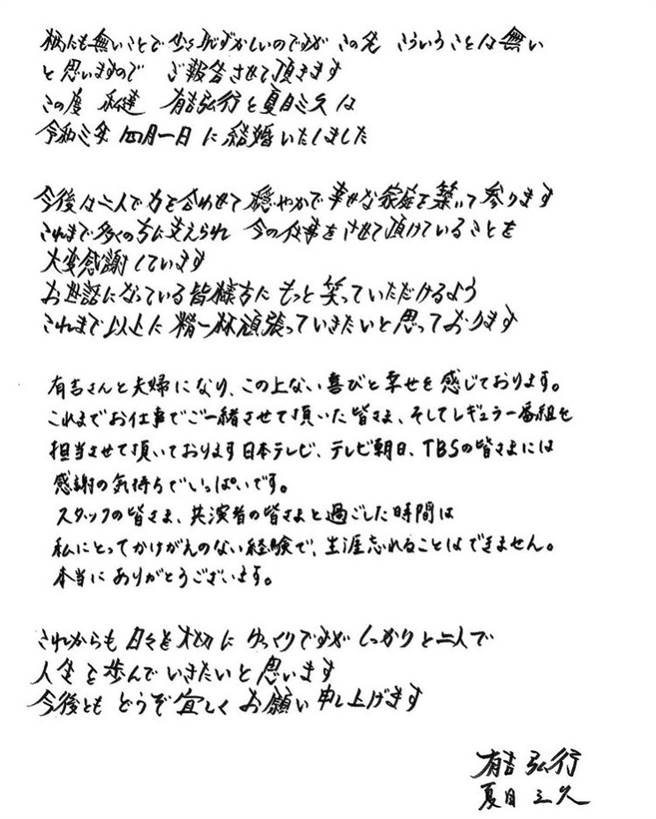 柄にも無いことで少々恥ずかしいのですが この先 こういうことは無い
と思いますので ご報告させて頂きます
この度 私達 有吉弘行と夏目三久は
令和三年 四月一日 に結婚いたしました
今後は二人で力を合わせて穏やかで幸せな家庭を築いて参ります
これまで多くの方に支えられ 今の仕事をさせて頂けていることを
大変感謝しています
お世話になっている皆様方に もっと笑っていただけるよう
これまで以上に精一杯頑張っていきたいと思っております
有吉さんと夫婦になり、この上ない喜びと幸せを感じております。
これまでお仕事でご一緒させて頂いた皆さま、そしてレギュラー番組を
担当させて頂いております日本テレビ、テレビ朝日、TBSの皆さまには
感謝の気持ちでいっぱいです。
スタッフの皆さま、共演者の皆さまと過ごした時間は
私にとってかけがえのない経験で、生涯忘れることはできません。
本当にありがとうございます。
これからも 日々を大切に ゆっくりですが しっかりと二人で
人生を歩んでいきたいと思います
今後とも どうぞ宜しく お願い申し上げます
有吉 弘行
夏目 三久